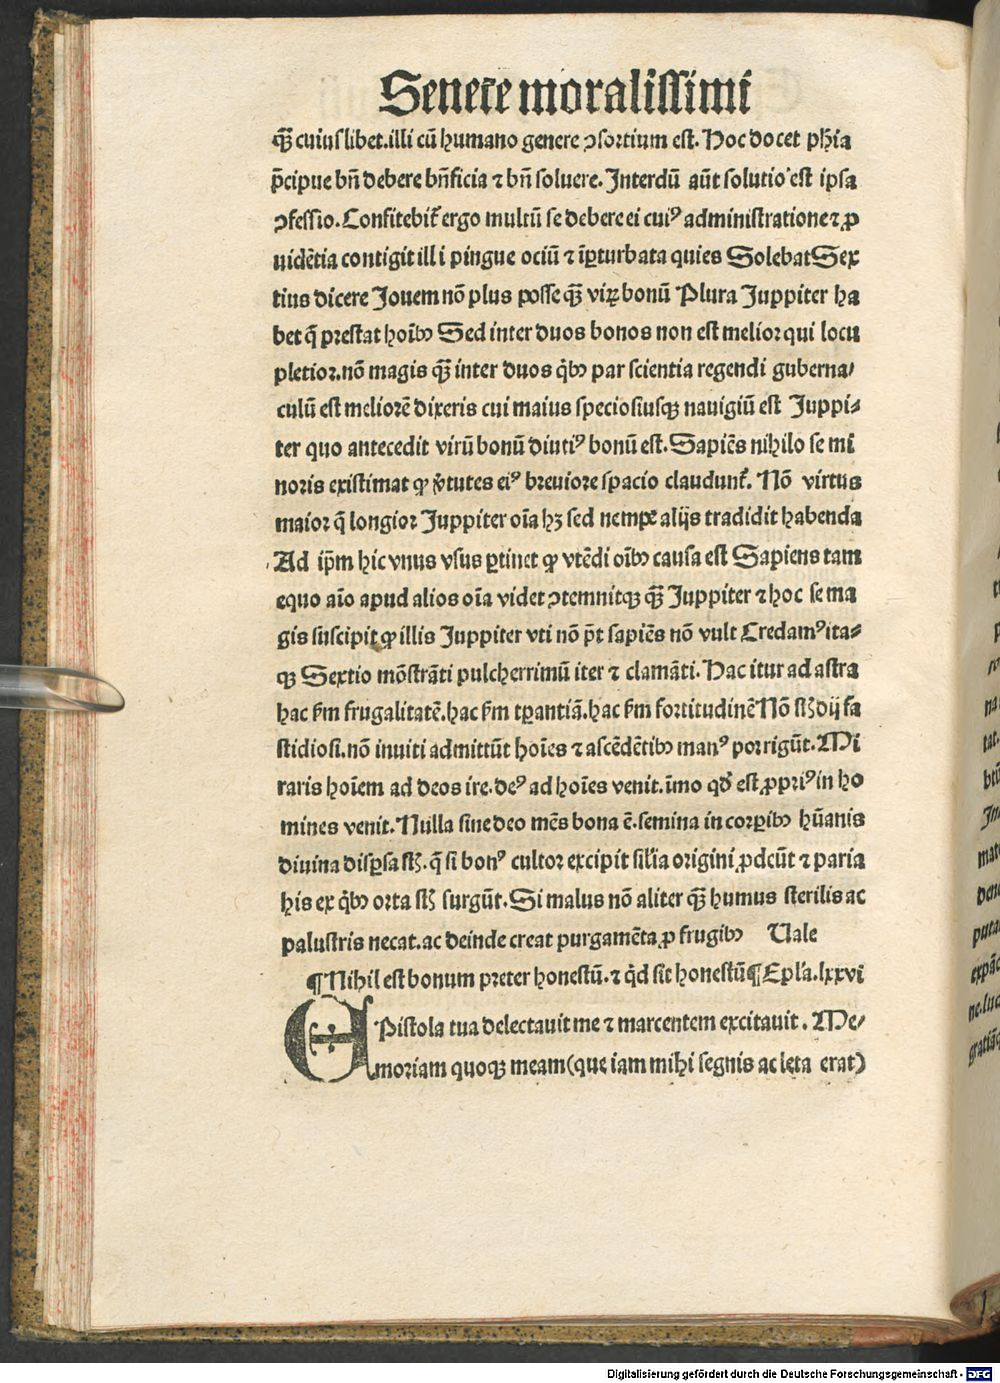 Senece moralissimi
qꝫ̄ cuiuslibet.illi cū humano genere ꝯsortium est. Hoc docet phīa
p̄cipue bn̄ debere bn̄ficia ⁊ bn̄ soluere. Interdū aūt solutio est ipsa
ꝯfessio. Confitebit᷑ ergo multū se debere ei cuiꝰ administratione ⁊ ꝓ
uidētia contigit illi pingue ociū ⁊ īꝑturbata quies Solebat Sex
tius dicere Jouem nō plus posse qꝫ̄ viꝝ bonū Plura Juppiter ha
bet q̄ prestat hoībꝰ Sed inter duos bonos non est melior qui locu
pletior.nō magis qꝫ̄ inter duos qͥbꝰ par scientia regendi guberna/
culū est meliorē dixeris cui maius speciosiusqꝫ nauigiū est Juppi⸗
ter quo antecedit virū bonū diutiꝰ bonū est. Sapiēs nihilo se mi
noris existimat ꝙ v̓tutes eiꝰ breuiore spacio claudunt᷑. Nō virtus
maior q̄ longior Juppiter oīa hꝫ sed nempe alijs tradidit habenda
Ad ip̄m hic vnus vsus ꝑtinet ꝙ vtēdi oībꝰ causa est Sapiens tam
equo aīo apud alios oīa videt ꝯtemnitqꝫ qꝫ̄ Juppiter ⁊ hoc se ma
gis suscipit ꝙ illis Juppiter vti nō p̄t sapiēs nō vult Credamꝰ ita⸗
qꝫ Sextio mōstrāti pulcherrimū iter ⁊ clamāti. Hac itur ad astra
hac ẜm frugalitatē.hac ẜm tꝑantiā.hac ẜm fortitudinē Nō st̄ dij fa
stidiosi.nō inuiti admittūt hoīes ⁊ ascēdētibꝰ manꝰ porrigūt. Mi
raris hoīem ad deos ire.deꝰ ad hoīes venit.īmo qd̄ est ꝓpriꝰ in ho
mines venit. Nulla sine deo mēs bona ē.semina in corꝑibꝰ hūanis
diuina disꝑsa st̄.q̄ si bonꝰ cultor excipit sil̓ia origini ꝓdeūt ⁊ paria
his ex qͥbꝰ orta st̄ surgūt. Si malus nō aliter qꝫ̄ humus sterilis ac
palustris necat.ac deinde creat purgamēta ꝓ frugibꝰ Uale
¶ Nihil est bonum preter honestū. ⁊ qͥd sit honestū ¶ Epl̓a.lxxvi
EPistola tua delectauit me ⁊ marcentem excitauit. Me⸗
moriam quoqꝫ meam (que iam mihi segnis ac leta erat)
Digitalisierung gefördert durch die Deutsche Forschungsgemeinschaft - DFG